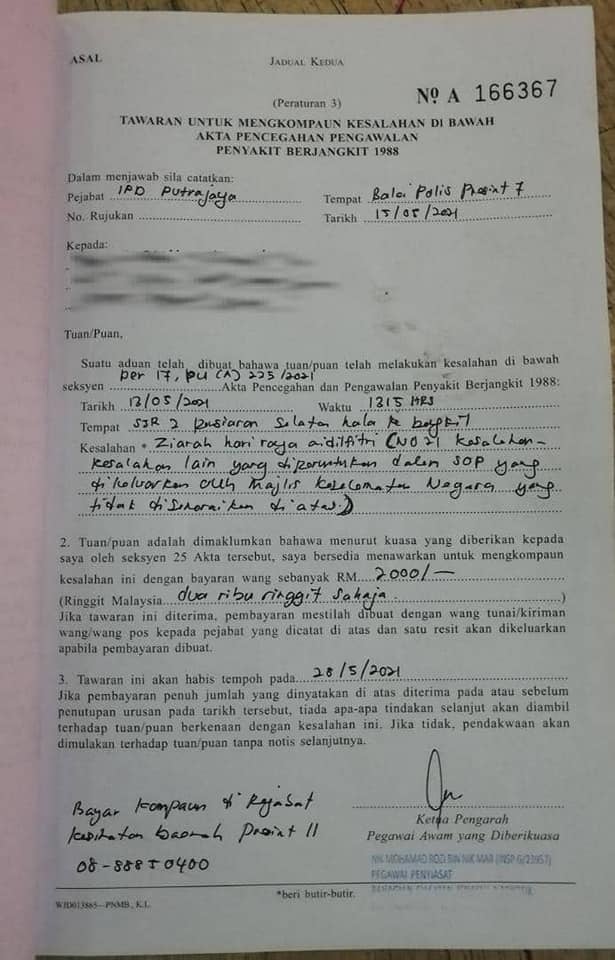 ASAL
JADUAL KEDUA
(Peraturan 3)
Nº A 166367
TAWARAN UNTUK MENGKOMPAUN KESALAHAN DI BAWAH
AKTA PENCEGAHAN PENGAWALAN
PENYAKIT BERJANGKIT 1988
Dalam menjawab sila catatkan:
Pejabat IPD Putrajaya
Tempat Balai Polis Presint 7
No. Rujukan
Tarikh 15/05/2021
Kepada:
Tuan/Puan,
Suatu aduan telah dibuat bahawa tuan/puan telah melakukan kesalahan di bawah
per 17, PU (A) 225/2021
seksyen Akta Pencegahan dan Pengawalan Penyakit Berjangkit 1988:
Tarikh 13/05/2021 Waktu 1315 HRS
Tempat SJR 2 Persiaran Selatan hala ke
Kesalahan * Ziarah hari raya aidilfitri (NO 21 kesalahan-
kesalahan lain yang diperuntukan dalam SOP yang
dikeluarkan oleh Majlis Keselamatan Negara yang
tidak disenaraikan di atas.)
2. Tuan/puan adalah dimaklumkan bahawa menurut kuasa yang diberikan kepada
saya oleh seksyen 25 Akta tersebut, saya bersedia menawarkan untuk mengkompaun
kesalahan ini dengan bayaran wang sebanyak RM 2000/-
(Ringgit Malaysia dua ribu ringgit sahaja.)
Jika tawaran ini diterima, pembayaran mestilah dibuat dengan wang tunai/kiriman
wang/wang pos kepada pejabat yang dicatat di atas dan satu resit akan dikeluarkan
apabila pembayaran dibuat.
3. Tawaran ini akan habis tempoh pada 28/5/2021
Jika pembayaran penuh jumlah yang dinyatakan di atas diterima pada atau sebelum
penutupan urusan pada tarikh tersebut, tiada apa-apa tindakan selanjut akan diambil
terhadap tuan/puan berkenaan dengan kesalahan ini. Jika tidak, pendakwaan akan
dimulakan terhadap tuan/puan tanpa notis selanjutnya.
Bayar Kompaun di Pejabat
Kesihatan Daerah Presint 11
08-88850400
Ketua Pengarah
Pegawai Awam yang Diberikuasa
NIK MOHAMAD ROZI BIN NIK MAR (INSP G/23957)
PEGAWAI PENYIASAT
*beri butir-butir.
WJD013865—PNMB., K.L.